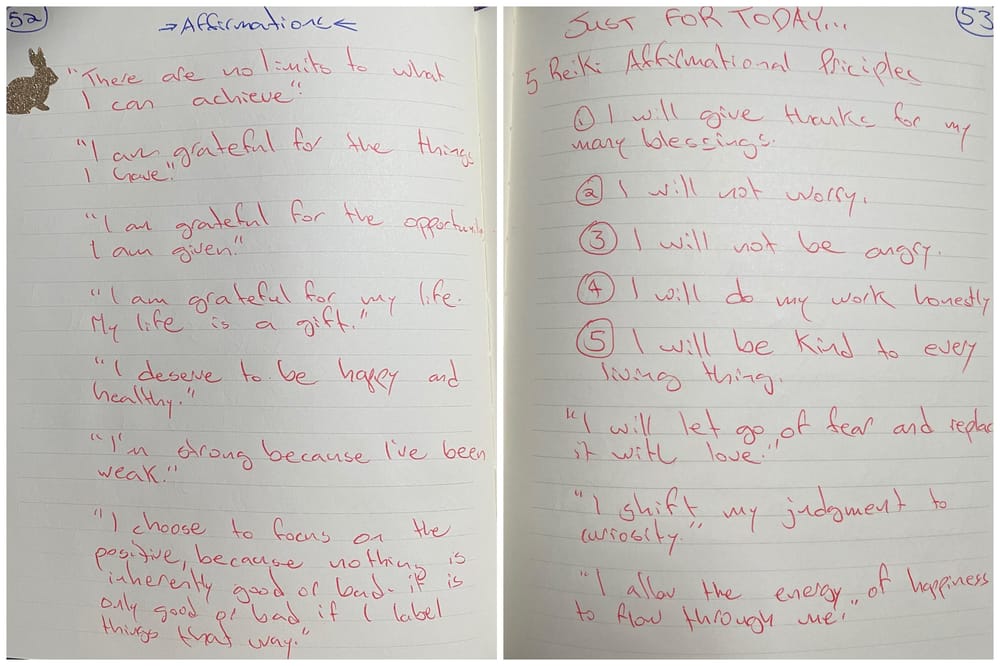 52
→Affirmations←
"There are no limits to what
I can achieve".
"I am grateful for the things
I have."
"I am grateful for the
I am given."
"I am grateful for my life.
My life is a gift."
"I deserve to be happy and
healthy."
"I'm strong because I've been
weak."
"I choose to focus on the
positive, because nothing is
inherently good or bad- it is
only good or bad if I label
things that way."
53
JUST FOR TODAY...
5 Reiki Affirmational Priciples
① I will give thanks for my
many blessings.
② I will not worry.
③ I will not be angry.
④ I will do my work honestly
⑤ I will be kind to every
living thing.
"I will let go of fear and replac
it with love."
"I shift my judgment to
curiosity."
"I allow the energy of happiness
to flow through me."